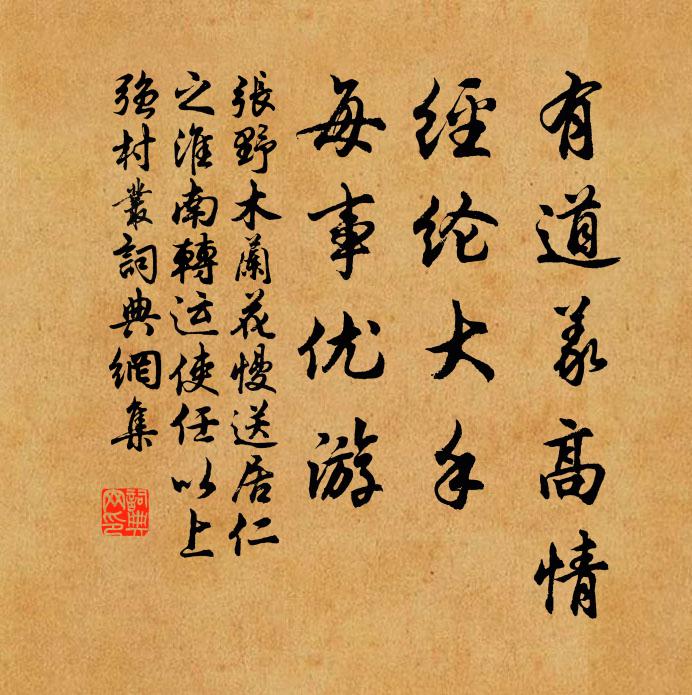 有道义高情
經纶大手
每事优游
張野木蘭花慢送居仁
之淮南轉运使任以上
强村叢詞典網集
詞典网印